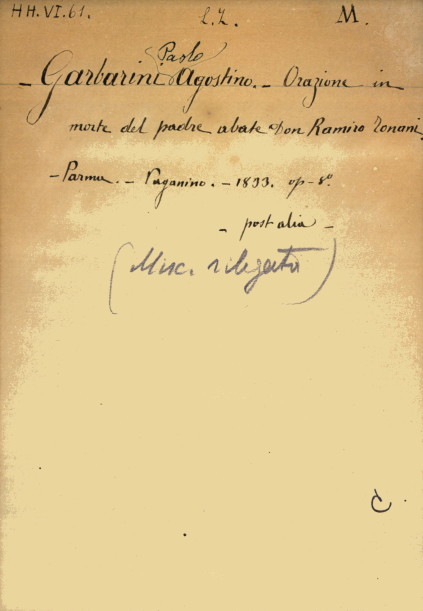 HH.VI.61. L.Z. M.
Paolo
- Garbarini Agostino. - Orazione in
morte del padre abate Don Ramiro Tonani
- Parma. - Paganino. - 1833. op - 8°.
- post alia -
(Misc. rilegata)
C